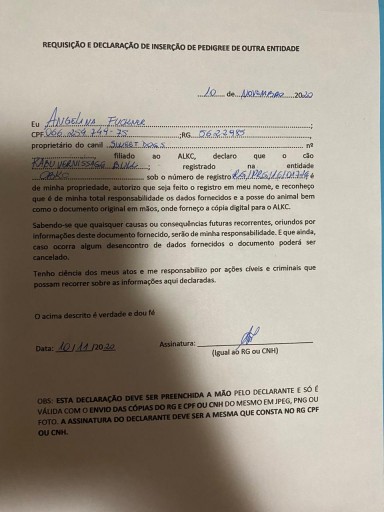 REQUISIÇÃO E DECLARAÇÃO DE INSERÇÃO DE PEDIGREE DE OUTRA ENTIDADE
10 de NOVEMBRO 2020
Eu ANGELINA
CPF 006.259.749-75 ;RG 5622985
proprietário do canil SUNSET DOGS nº
filiado ao ALKC, declaro que o cão
KABU VERNISSAGE BULL ; registrado na entidade
CBKC sob o número de registro é
de minha propriedade, autorizo que seja feito o registro em meu nome, e reconheço
que é de minha total responsabilidade os dados fornecidos e a posse do animal bem
como o documento original em mãos, onde forneço a cópia digital para o ALKC.
Sabendo-se que quaisquer causas ou consequências futuras recorrentes, oriundos por
informações deste documento fornecido, serão de minha responsabilidade. E que ainda,
caso ocorra algum desencontro de dados fornecidos o documento poderá ser
cancelado.
Tenho ciência dos meus atos e me responsabilizo por ações cíveis e criminais que
possam recorrer sobre as informações aqui declaradas.
O acima descrito é verdade e dou fé
Data: 10/11/2020 Assinatura:
(Igual ao RG ou CNH)
OBS: ESTA DECLARAÇÃO DEVE SER PREENCHIDA A MÃO PELO DECLARANTE E SÓ É
VÁLIDA COM O ENVIO DAS CÓPIAS DO RG E CPF OU CNH DO MESMO EM JPEG, PNG OU
FOTO. A ASSINATURA DO DECLARANTE DEVE SER A MESMA QUE CONSTA NO RG CPF
OU CNH.